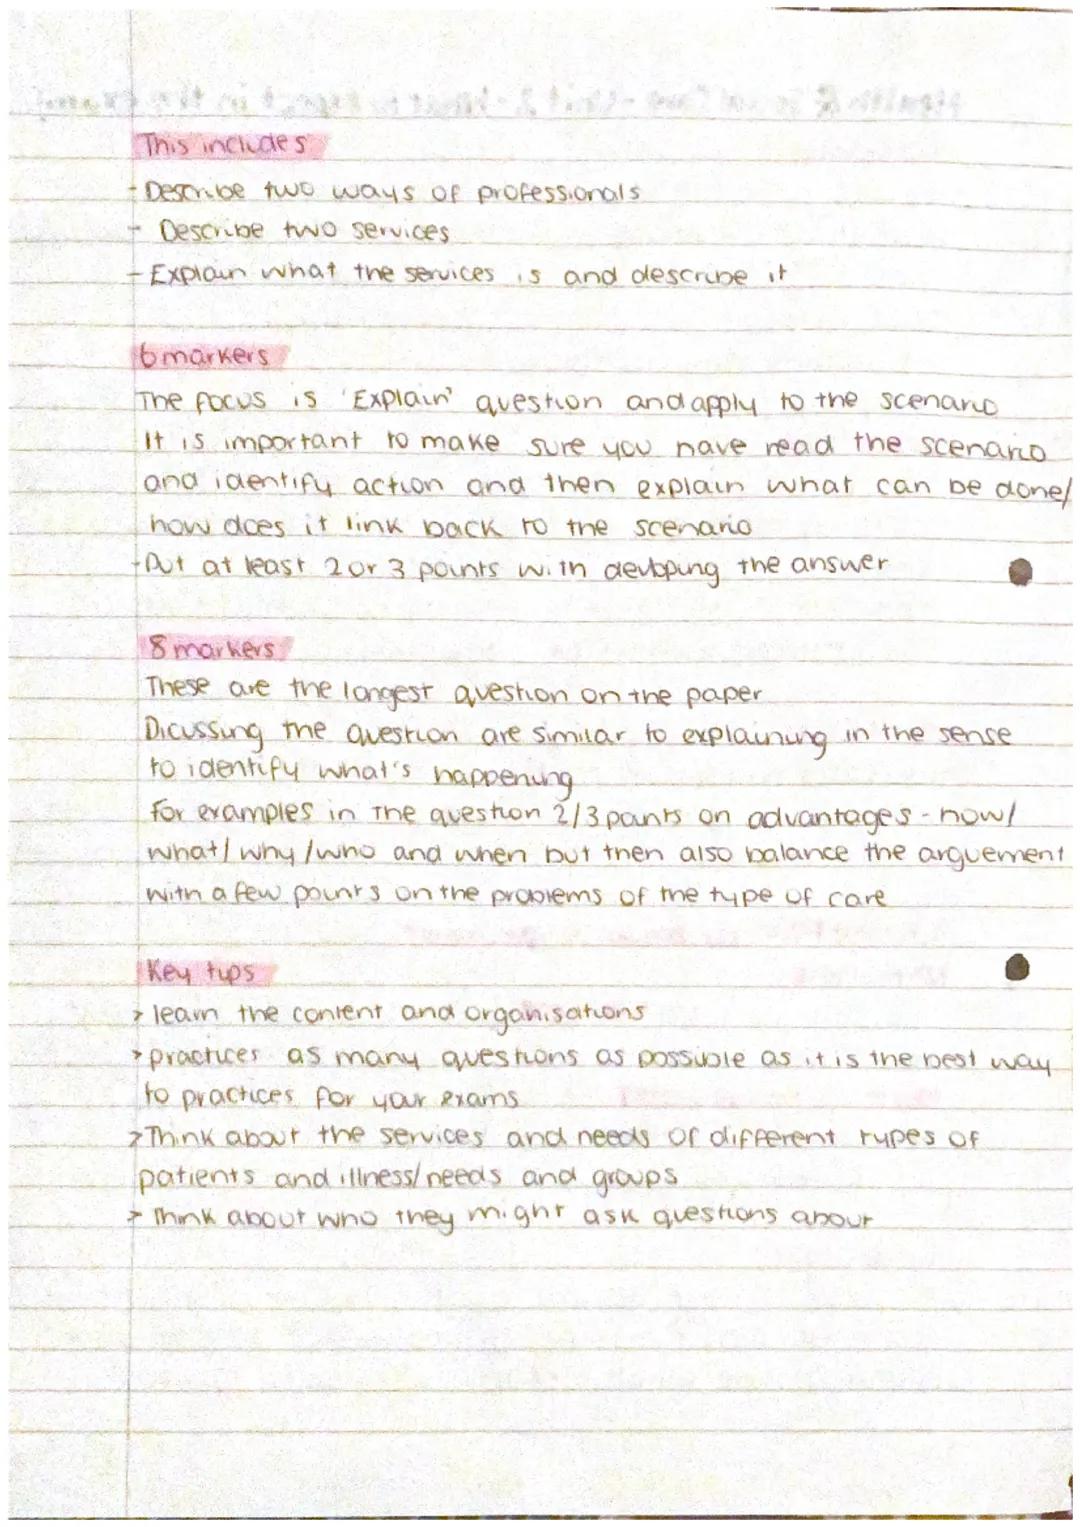 This includes
- Describe two ways of professionals
- Describe two services
- Explain what the services is and describe it
6 markers
The focus is 'Explain' question and apply to the scenario
It is important to make sure you have read the scenario
and identify action and then explain what can be done/
how does it link back to the scenario
- Put at least 2 or 3 points with devloping the answer
8 markers
These are the longest question on the paper
Dicussing the question are similar to explaining in the sense
to identify what's happening
For examples in the question 2/3 points on advantages - how/
what/ why /who and when but then also balance the arguement
with a few points on the problems of the type of care
Key tips
> learn the content and organisations
> practices as many questions as possible as it is the best way
to practices for your exams
> Think about the services and needs of different types of
patients and illness/needs and groups
> Think about who they might ask questions about